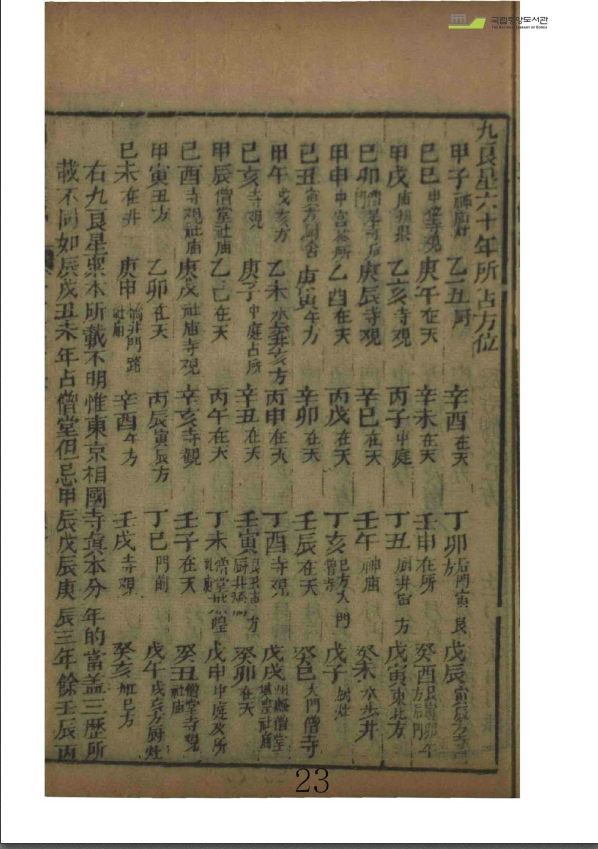 국립중앙도서관
THE NATIONAL LIBRARY OF KOREA
九良星六十年所占方位
甲子 神廟 乙丑 厨 辛酉 在天 丁卯 后門寅艮方 戊辰 寅辰方
己巳 寺觀 庚午 在天 辛未 在天 壬申 在所 癸酉
甲戌 乙亥 寺觀 丙子 中庭 丁丑 厨井 方 戊寅 東北方
己卯 庚辰 寺觀 辛巳 在天 壬午 神庙 癸未 水步井
甲申 乙酉 在天 丙戌 在天 丁亥 巳方大門 戊子 厨灶
己丑 寅方厨舍 庚寅 午方 辛卯 在天 壬辰 在天 癸巳 大門僧寺
甲午 戌亥方 乙未 水步井亥方 丙申 在天 丁酉 寺观 戊戌 僧堂社庙
己亥 寺觀 庚子 中庭占所 辛丑 在天 壬寅 方 癸卯 在天
甲辰 僧堂社庙 乙巳 在天 丙午 在天 丁未 僧堂 戊申 中庭及所
己酉 寺觀社庙 庚戌 社庙寺观 辛亥 寺觀 壬子 在天 癸丑 僧堂寺觀社庙
甲寅 丑方 乙卯 在天 丙辰 寅辰方 丁巳 門前 戊午 戌亥方厨灶
己未 在井 庚申 門路社庙 辛酉 午方 壬戌 寺观 癸亥 巳方
右九良星衆本所載不明惟東京相國寺眞本分年的當盖三歷所
載不同如辰戌丑未年占僧堂但忌甲辰戊辰庚辰三年餘壬辰丙
23